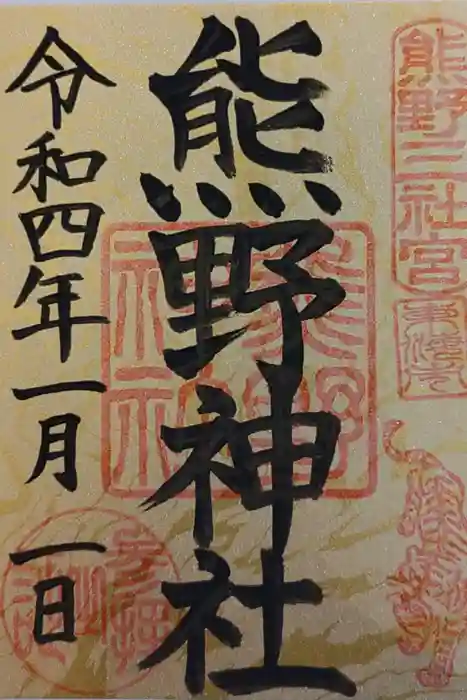 熊野三社宮
熊野神社
令和四年一月一日